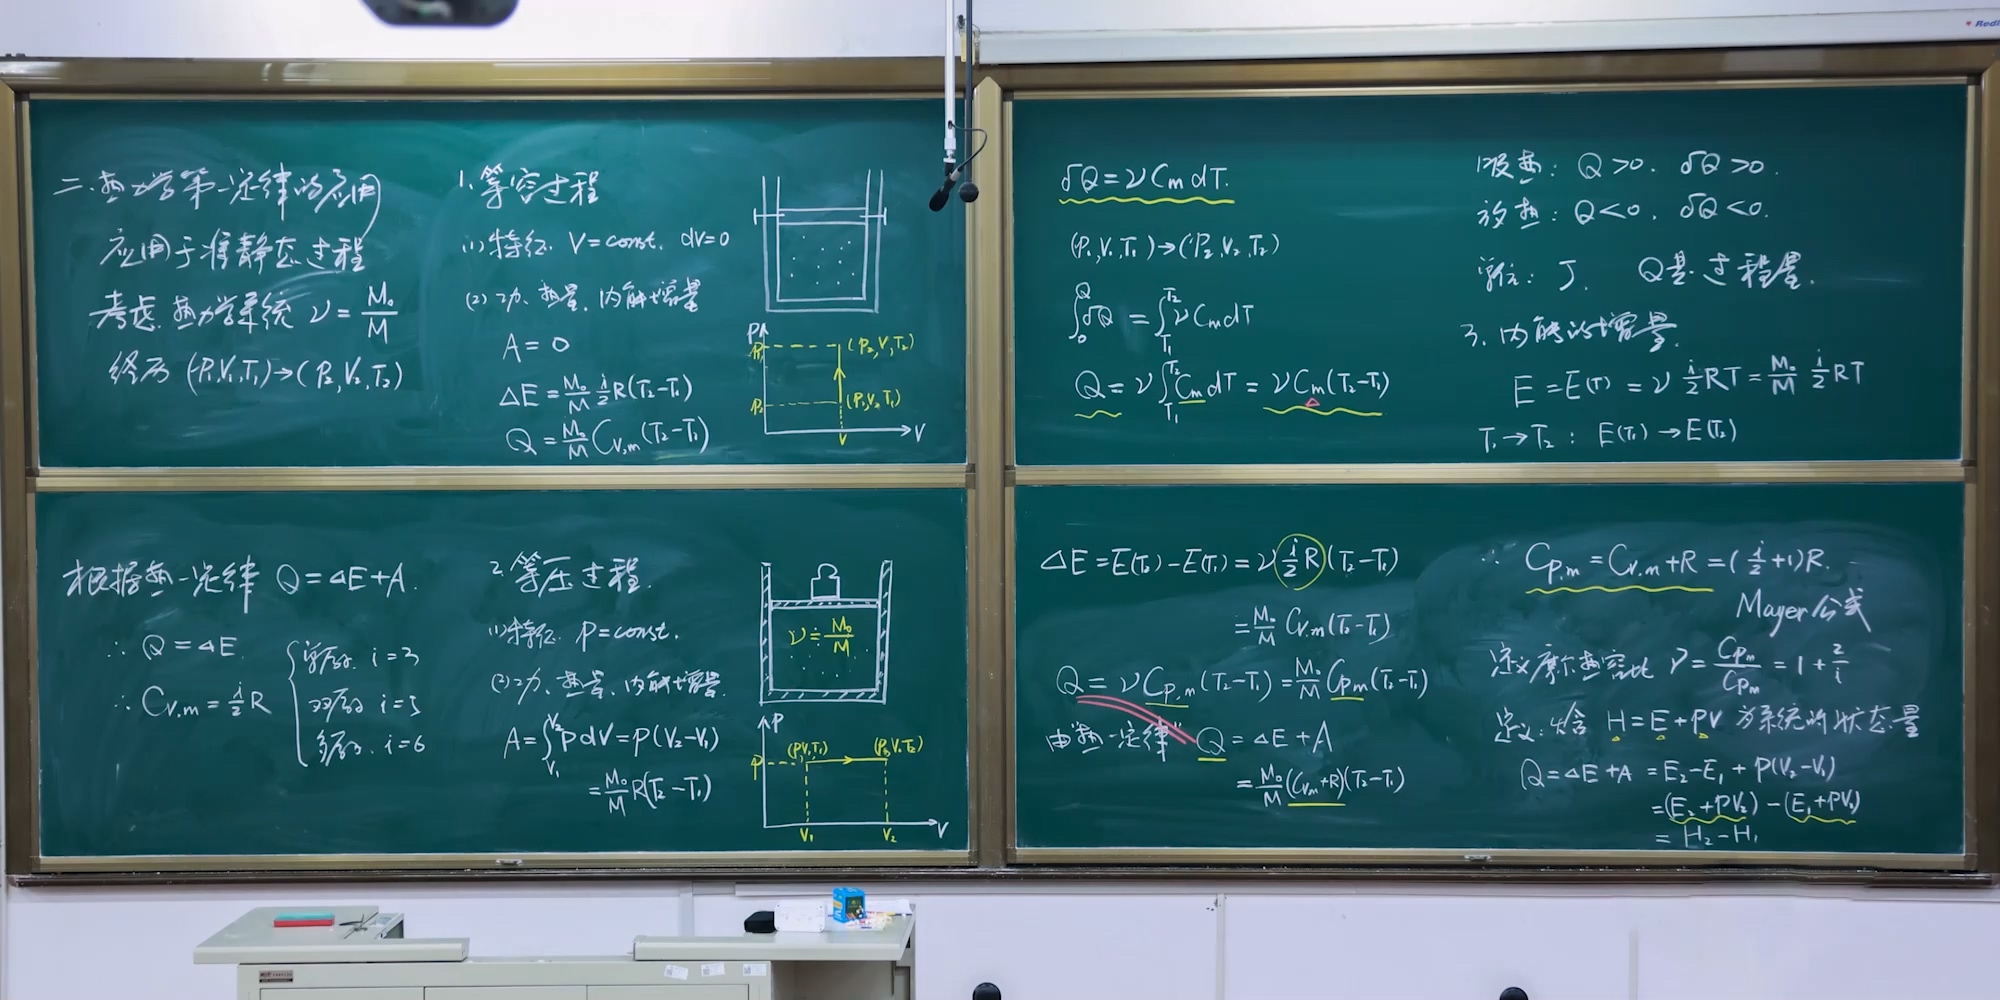 二.热力学第一定律的应用
应用于准静态过程
考虑.热力学系统 ν = M₀/M
经历 (P₁,V₁,T₁)→(P₂,V₂,T₂)
1.等容过程
(1)特征. V=const. dV=0
(2)功、热量、内能增量
A = 0
ΔE = M₀/M i/2 R(T₂-T₁)
Q = M₀/M Cv,m (T₂-T₁)
P
(P₂,V,T₂)
(P₁,V,T₁)
V
V
δQ = νCm dT.
(P₁,V₁,T₁)→(P₂,V₂,T₂)
∫₀^Q δQ = ∫_T₁^T₂ νCm dT
Q = ν∫_T₁^T₂ Cm dT = νCm(T₂-T₁)
吸热: Q>0. δQ>0.
放热: Q<0. δQ<0.
单位: J. Q是过程量.
3.内能的增量.
E = E(T) = ν i/2 RT = M₀/M i/2 RT
T₁→T₂ : E(T₁)→E(T₂)
根据热一定律 Q=ΔE+A.
∴ Q=ΔE
∴ Cv.m = i/2 R
单原子. i=3
双原子 i=5
多原子. i=6
2.等压过程.
(1)特征. P=const.
(2)功、热量、内能增量.
A = ∫_V₁^V₂ PdV = P(V₂-V₁)
= M₀/M R(T₂-T₁)
ν = M₀/M
P
P
(P,V₁,T₁)
(P,V₂,T₂)
V₁
V₂
V
ΔE = E(T₂)-E(T₁) = ν i/2 R (T₂-T₁)
= M₀/M Cv.m(T₂-T₁)
Q = νCp,m(T₂-T₁) = M₀/M Cp,m(T₂-T₁)
由"热一定律" Q = ΔE+A
= M₀/M (Cv,m+R)(T₂-T₁)
∴ Cp,m = Cv,m+R = (i/2+1)R.
Mayer公式
定义摩尔热容比 γ = Cp,m/Cp,m = 1+2/i
定义:焓 H=E+PV 为系统的状态量
Q=ΔE+A = E₂-E₁+P(V₂-V₁)
=(E₂+PV₂)-(E₁+PV₁)
= H₂-H₁